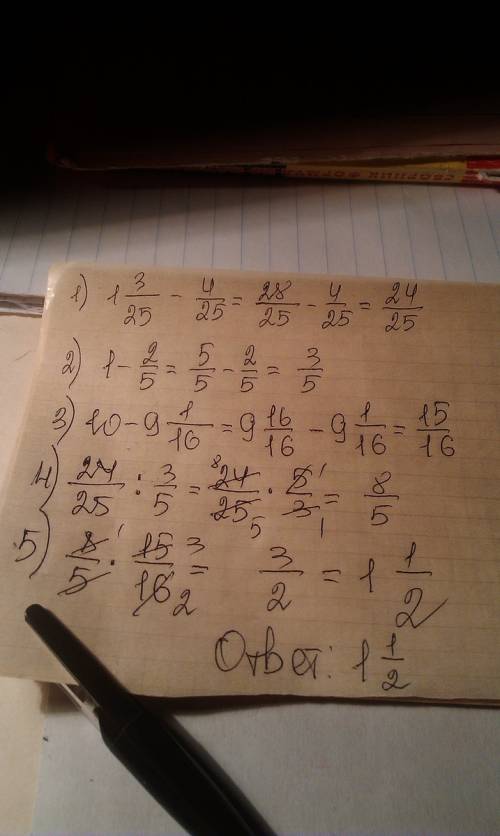 СБОРНИК ФОРМУ
1) 1 3/25 - 4/25 = 28/25 - 4/25 = 24/25
2) 1 - 2/5 = 5/5 - 2/5 = 3/5
3) 10 - 9 1/16 = 9 16/16 - 9 1/16 = 15/16
4) 24/25 : 3/5 = 8 24/25 5 · 5 1/3 1 = 8/5
5) 8 1/5 · 15 3/16 2 = 3/2 = 1 1/2
Ответ: 1 1/2